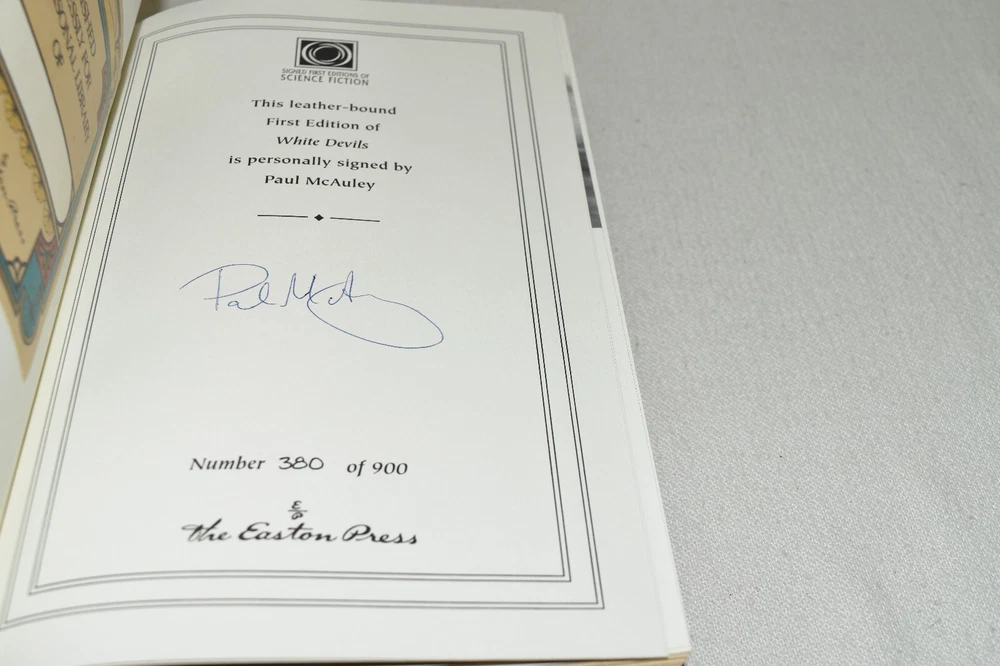 SIGNED FIRST EDITIONS OF
SCIENCE FICTION
This leather-bound
First Edition of
White Devils
is personally signed by
Paul McAuley
Paul McAuley
Number 380 of 900
E
P
the Easton Press
LIBRARY
OF